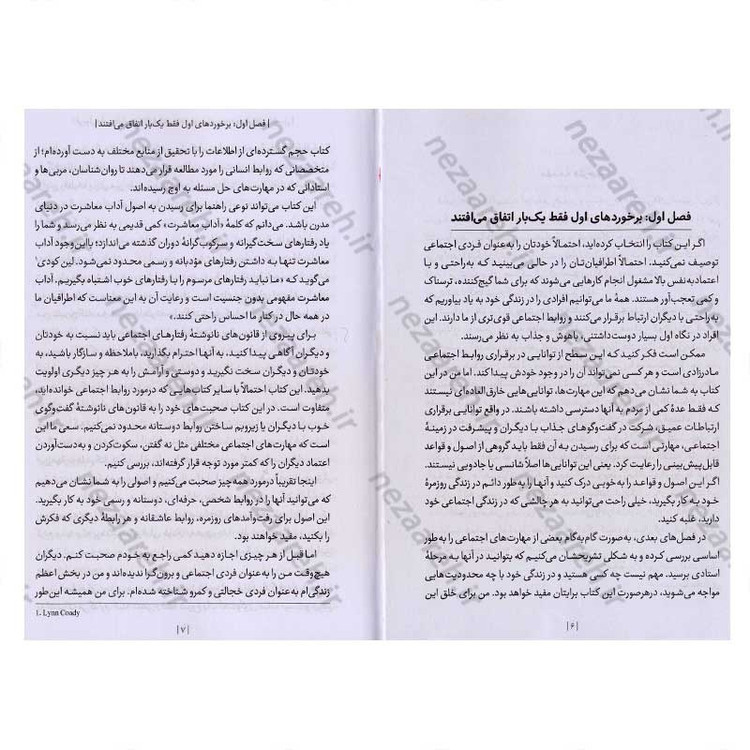 فصل اول: برخوردهای اول فقط یک‌بار اتفاق می‌افتند
اگر این کتاب را انتخاب کرده‌اید، احتمالاً خودتان را به‌عنوان فردی اجتماعی
توصیف نمی‌کنید. احتمالاً اطرافیان‌تان را در حالی می‌بینید که به‌راحتی و با
اعتمادبه‌نفس بالا مشغول انجام کارهایی می‌شوند که برای شما گیج‌کننده، ترسناک
و کمی تعجب‌آور هستند. همهٔ ما می‌توانیم افرادی را در زندگی خود به یاد بیاوریم که
به‌راحتی با دیگران ارتباط برقرار می‌کنند و روابط اجتماعی قوی‌تری از ما دارند. این
افراد در نگاه اول بسیار دوست‌داشتنی، باهوش و جذاب به نظر می‌رسند.
ممکن است فکر کنید که این سطح از توانایی در برقراری روابط اجتماعی
مادرزادی است و هر کسی نمی‌تواند آن را در وجود خودش پیدا کند. اما من در این
کتاب به شما نشان می‌دهم که این مهارت‌ها، توانایی‌هایی خارق‌العاده‌ای نیستند
که فقط عدهٔ کمی از مردم به آنها دسترسی داشته باشند. در واقع توانایی برقراری
ارتباطات عمیق، شرکت در گفت‌وگوهای جذاب با دیگران و پیشرفت در زمینهٔ
اجتماعی، مهارتی است که برای رسیدن به آن فقط باید گروهی از اصول و قواعد
قابل پیش‌بینی را رعایت کرد. یعنی این توانایی‌ها اصلاً شانسی یا جادویی نیستند.
اگر این اصول و قواعد را به‌خوبی درک کنید و آنها را به‌طور دائم در زندگی روزمرهٔ
خود به کار بگیرید، خیلی راحت می‌توانید به هر چالشی که در زندگی اجتماعی خود
دارید، غلبه کنید.
در فصل‌های بعدی، به‌صورت گام‌به‌گام بعضی از مهارت‌های اجتماعی را به‌طور
اساسی بررسی کرده و به شکلی تشریح‌شان می‌کنیم که بتوانید در آنها به مرحلهٔ
استادی برسید. مهم نیست چه کسی هستید و در زندگی خود با چه محدودیت‌هایی
مواجه می‌شوید، درهرصورت این کتاب برایتان مفید خواهد بود. من برای خلق این
|۶|
|فصل اول: برخوردهای اول فقط یک‌بار اتفاق می‌افتند|
کتاب حجم گسترده‌ای از اطلاعات را با تحقیق از منابع مختلف به دست آورده‌ام؛ از
متخصصانی که روابط انسانی را مورد مطالعه قرار می‌دهند تا روان‌شناسان، مربی‌ها و
استادانی که در مهارت‌های حل مسئله به اوج رسیده‌اند.
این کتاب می‌تواند نوعی راهنما برای رسیدن به اصول آداب معاشرت در دنیای
مدرن باشد. می‌دانم که کلمهٔ «آداب معاشرت» کمی قدیمی به نظر می‌رسد و شما را
یاد رفتارهای سخت‌گیرانه و سرکوب‌گرانهٔ دوران گذشته می‌اندازد؛ بااین‌وجود آداب
معاشرت تنها به داشتن رفتارهای مؤدبانه و رسمی محدود نمی‌شود. لین کودی¹
می‌گوید که «ما نباید رفتارهای مرسوم را با رفتارهای خوب اشتباه بگیریم. آداب
معاشرت مفهومی بدون جنسیت است و رعایت آن به این معناست که اطرافیان ما
در همه حال در کنار ما احساس راحتی کنند.»
برای پیروی از قانون‌های نانوشتهٔ رفتارهای اجتماعی باید نسبت به خودتان
و دیگران آگاهی پیدا کنید، به آنها احترام بگذارید، باملاحظه و سازگار باشید، به
خودتان و دیگران سخت نگیرید و دوستی و آرامش را به هر چیز دیگری اولویت
بدهید. این کتاب احتمالاً با سایر کتاب‌هایی که درمورد روابط اجتماعی خوانده‌اید،
متفاوت است. در این کتاب صحبت‌های خود را به قانون‌های نانوشتهٔ گفت‌وگوی
خوب با دیگران یا زیروبم ساختن روابط دوستانه محدود نمی‌کنیم. سعی ما این
است که مهارت‌های اجتماعی مختلفی مثل نه گفتن، سکوت‌کردن و به‌دست‌آوردن
اعتماد دیگران را که کمتر مورد توجه قرار گرفته‌اند، بررسی کنیم.
اینجا تقریباً درمورد همه‌چیز صحبت می‌کنیم و اصولی را به شما نشان می‌دهیم
که می‌توانید آنها را در روابط شخصی، حرفه‌ای، دوستانه و رسمی خود به کار بگیرید.
این اصول برای رفت‌وآمدهای روزمره، روابط عاشقانه و هر رابطهٔ دیگری که فکرش
را بکنید، مفید خواهند بود.
اما قبل از هر چیزی اجازه دهید کمی راجع به خودم صحبت کنم. دیگران
هیچ‌وقت من را به‌عنوان فردی اجتماعی و برون‌گرا ندیده‌اند و من در بخش اعظم
زندگی‌ام به‌عنوان فردی خجالتی و کمرو شناخته شده‌ام. برای من همیشه این‌طور
1. Lynn Coady
|۷|
nezaareh.ir
nezaareh.ir
nezaareh.ir
nezaareh.ir
nezaareh.ir